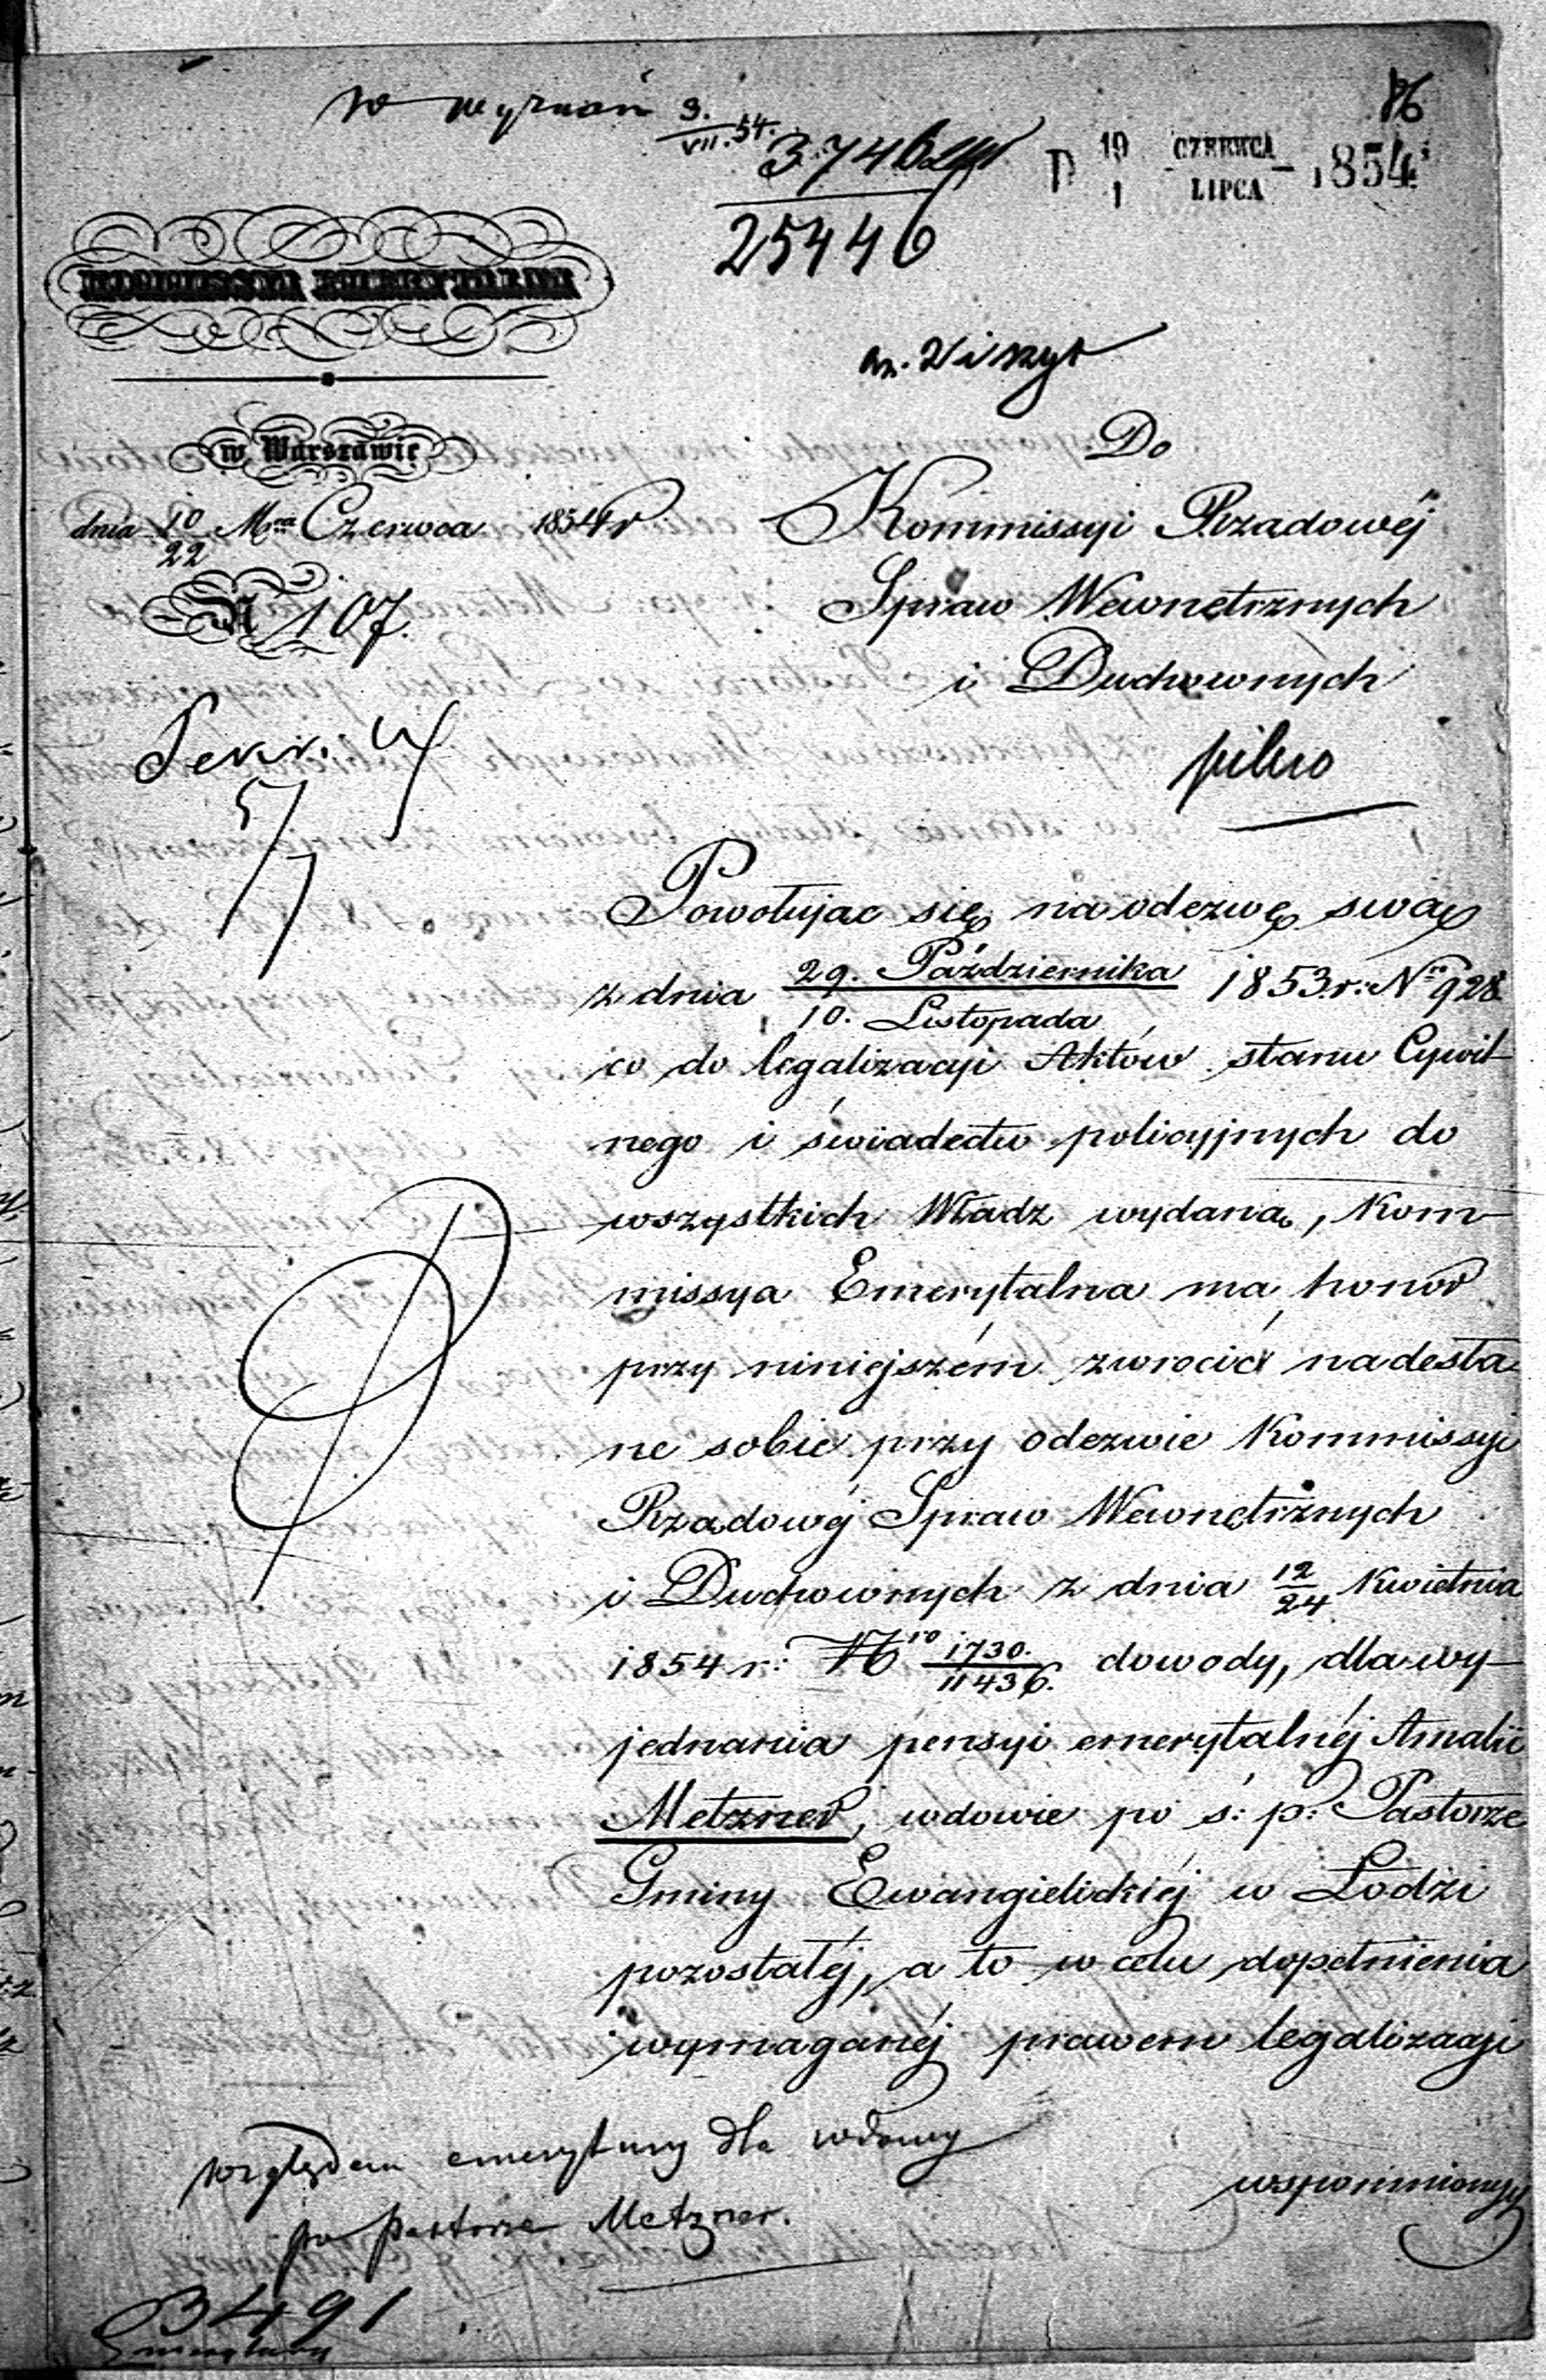 86
3.
VII.54.
3746
25446
D 19 CZERWCA
1 LIPCA 1854
KOMMISSYA EMERYTALNA
w Warszawie
dnia 10/22 Mca Czerwca 1854 r
N 107.
Do
Kommissyi Rządowéj
Spraw Wewnętrznych
i Duchownych
pilno
5/7
Powołując się na odezwę swą
z dnia 29. Października / 10. Listopada 1853 r: Nro 928
co do legalizacyi Aktów stanu Cywil-
nego i świadectw policyjnych do
wszystkich Władz wydaną, Kom-
missya Emerytalna ma honor
przy niniejszém zwrócić nadesła-
ne sobie przy odezwie Kommissyi
Rządowéj Spraw Wewnętrznych
i Duchownych z dnia 12/24 Kwietnia
1854 r: Nro 1730./11436. dowody, dla wy-
jednania pensyi emerytalnéj Amalii
Metzner, wdowie po ś: p: Pastorze
Gminy Ewangielickiéj w Łodzi
pozostałéj, a to w celu dopełnienia
wymaganéj prawem legalizacyi
wspomnionych
względem emerytury dla wdowy
po pastorze Metzner.
3491
Emerytury